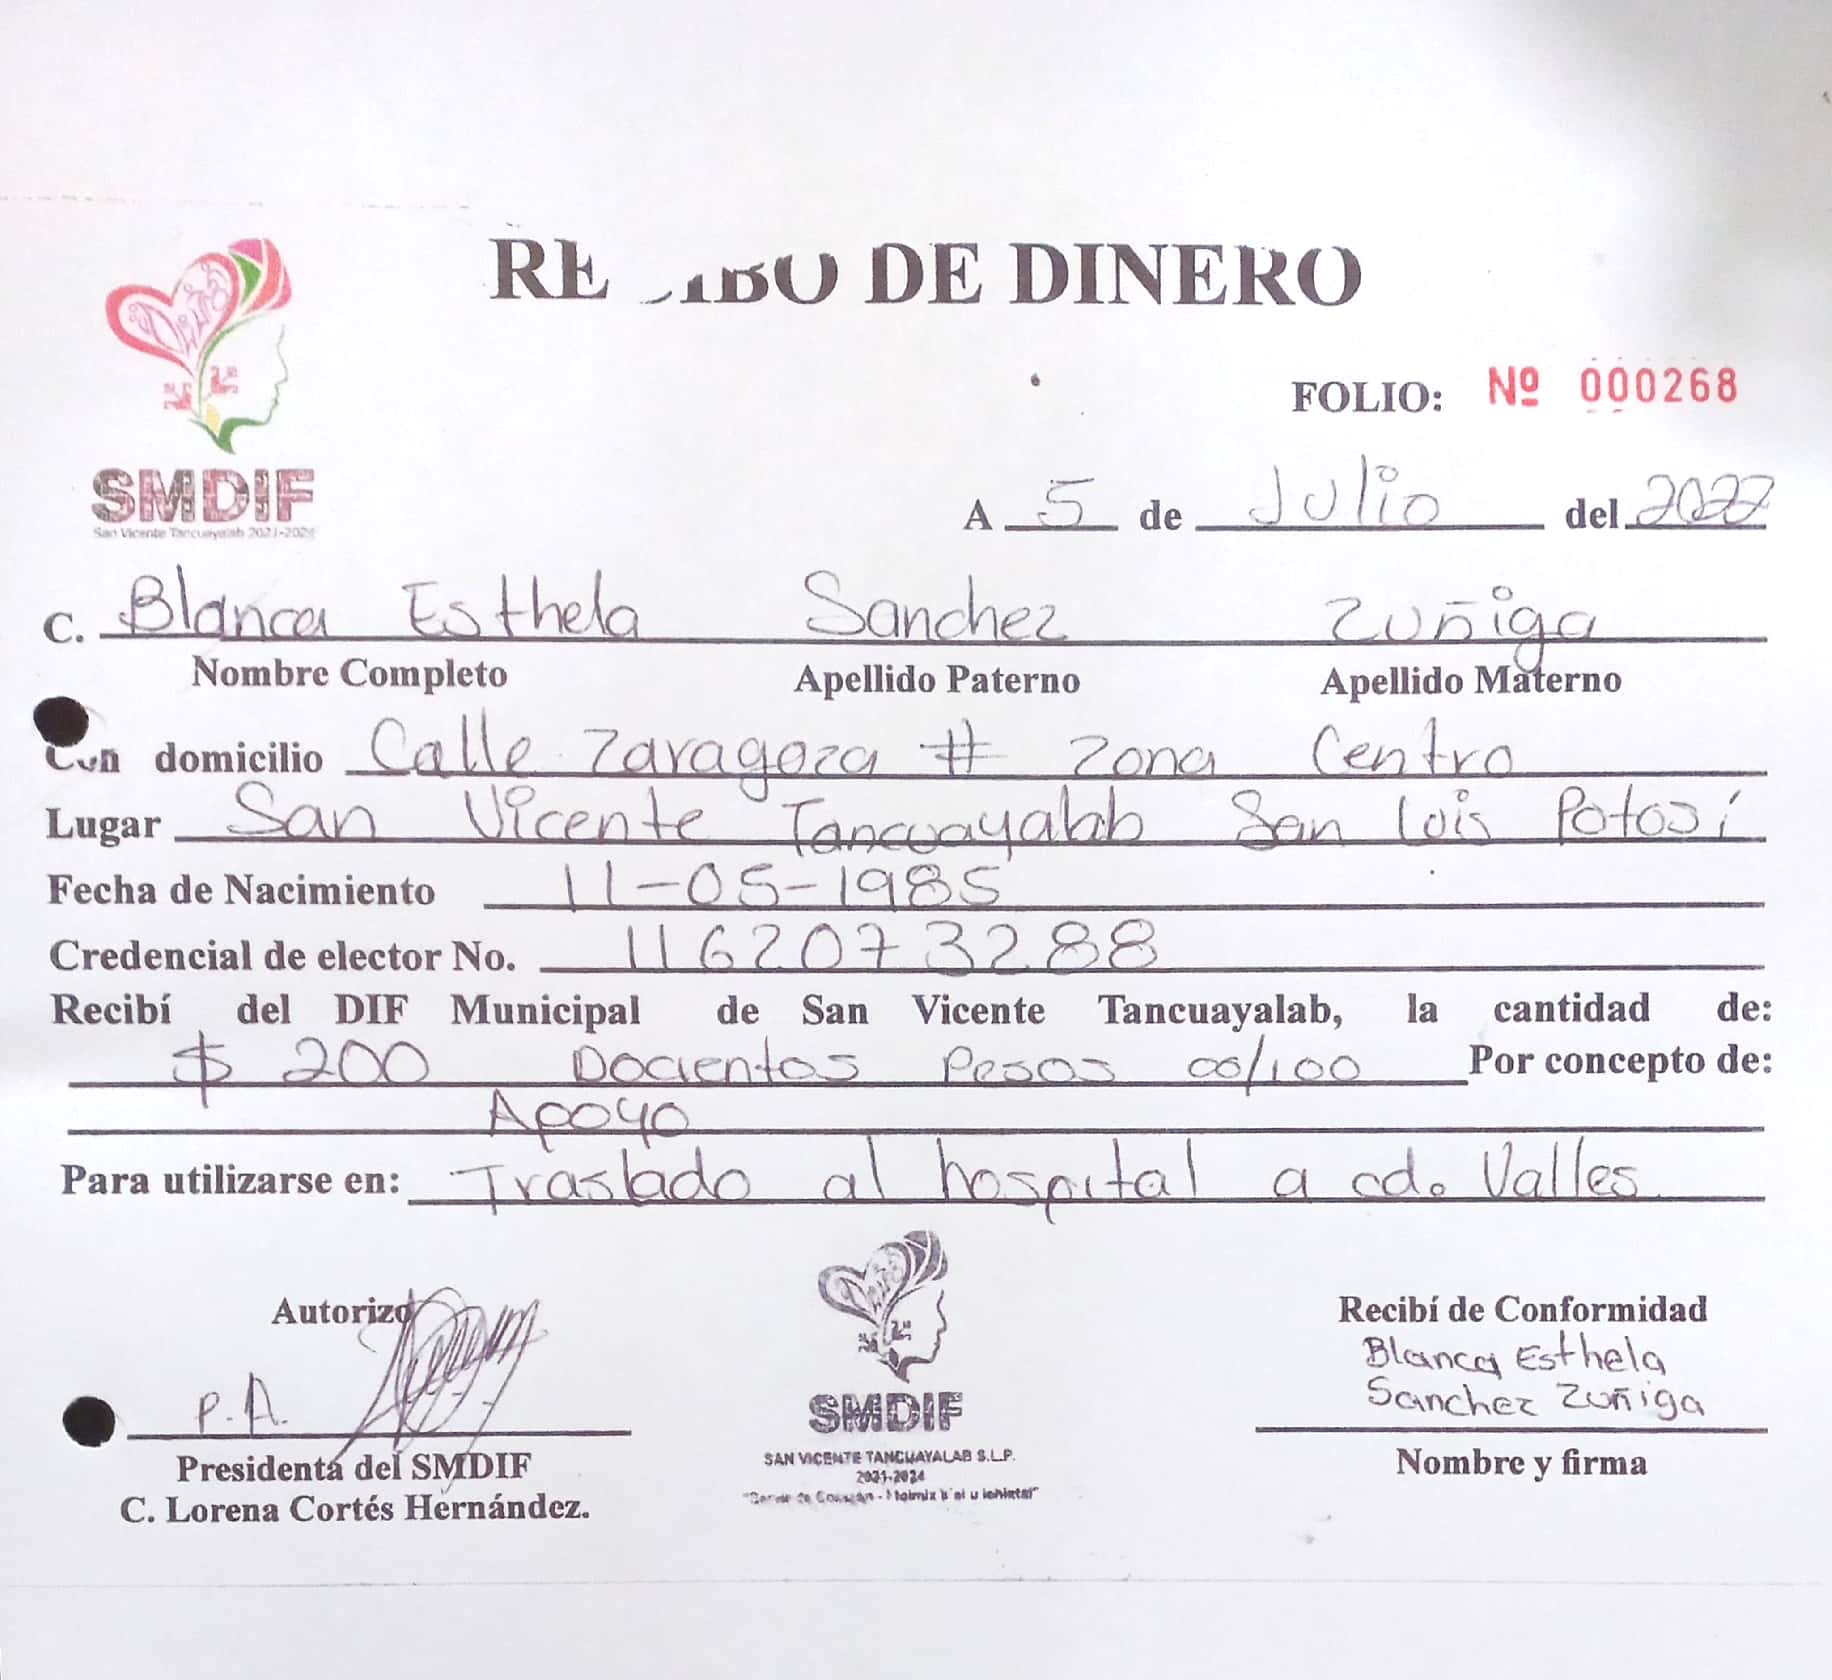 RECIBO DE DINERO
FOLIO: Nº 000268
SMDIF
San Vicente Tancuayalab 2021-2024
A 5 de Julio del 2022
C. Blanca Esthela Sanchez Zuñiga
Nombre Completo Apellido Paterno Apellido Materno
Con domicilio Calle Zaragoza # Zona Centro
Lugar San Vicente Tancuayalab San Luis Potosí
Fecha de Nacimiento 11-05-1985
Credencial de elector No. 1162073288
Recibí del DIF Municipal de San Vicente Tancuayalab, la cantidad de:
$ 200 Docientos Pesos 00/100 Por concepto de:
Apoyo
Para utilizarse en: Traslado al hospital a cd. Valles
Autorizo
P.A.
Presidenta del SMDIF
C. Lorena Cortés Hernández.
SMDIF
SAN VICENTE TANCUAYALAB S.L.P.
2021-2024
Recibí de Conformidad
Blanca Esthela
Sanchez Zuñiga
Nombre y firma